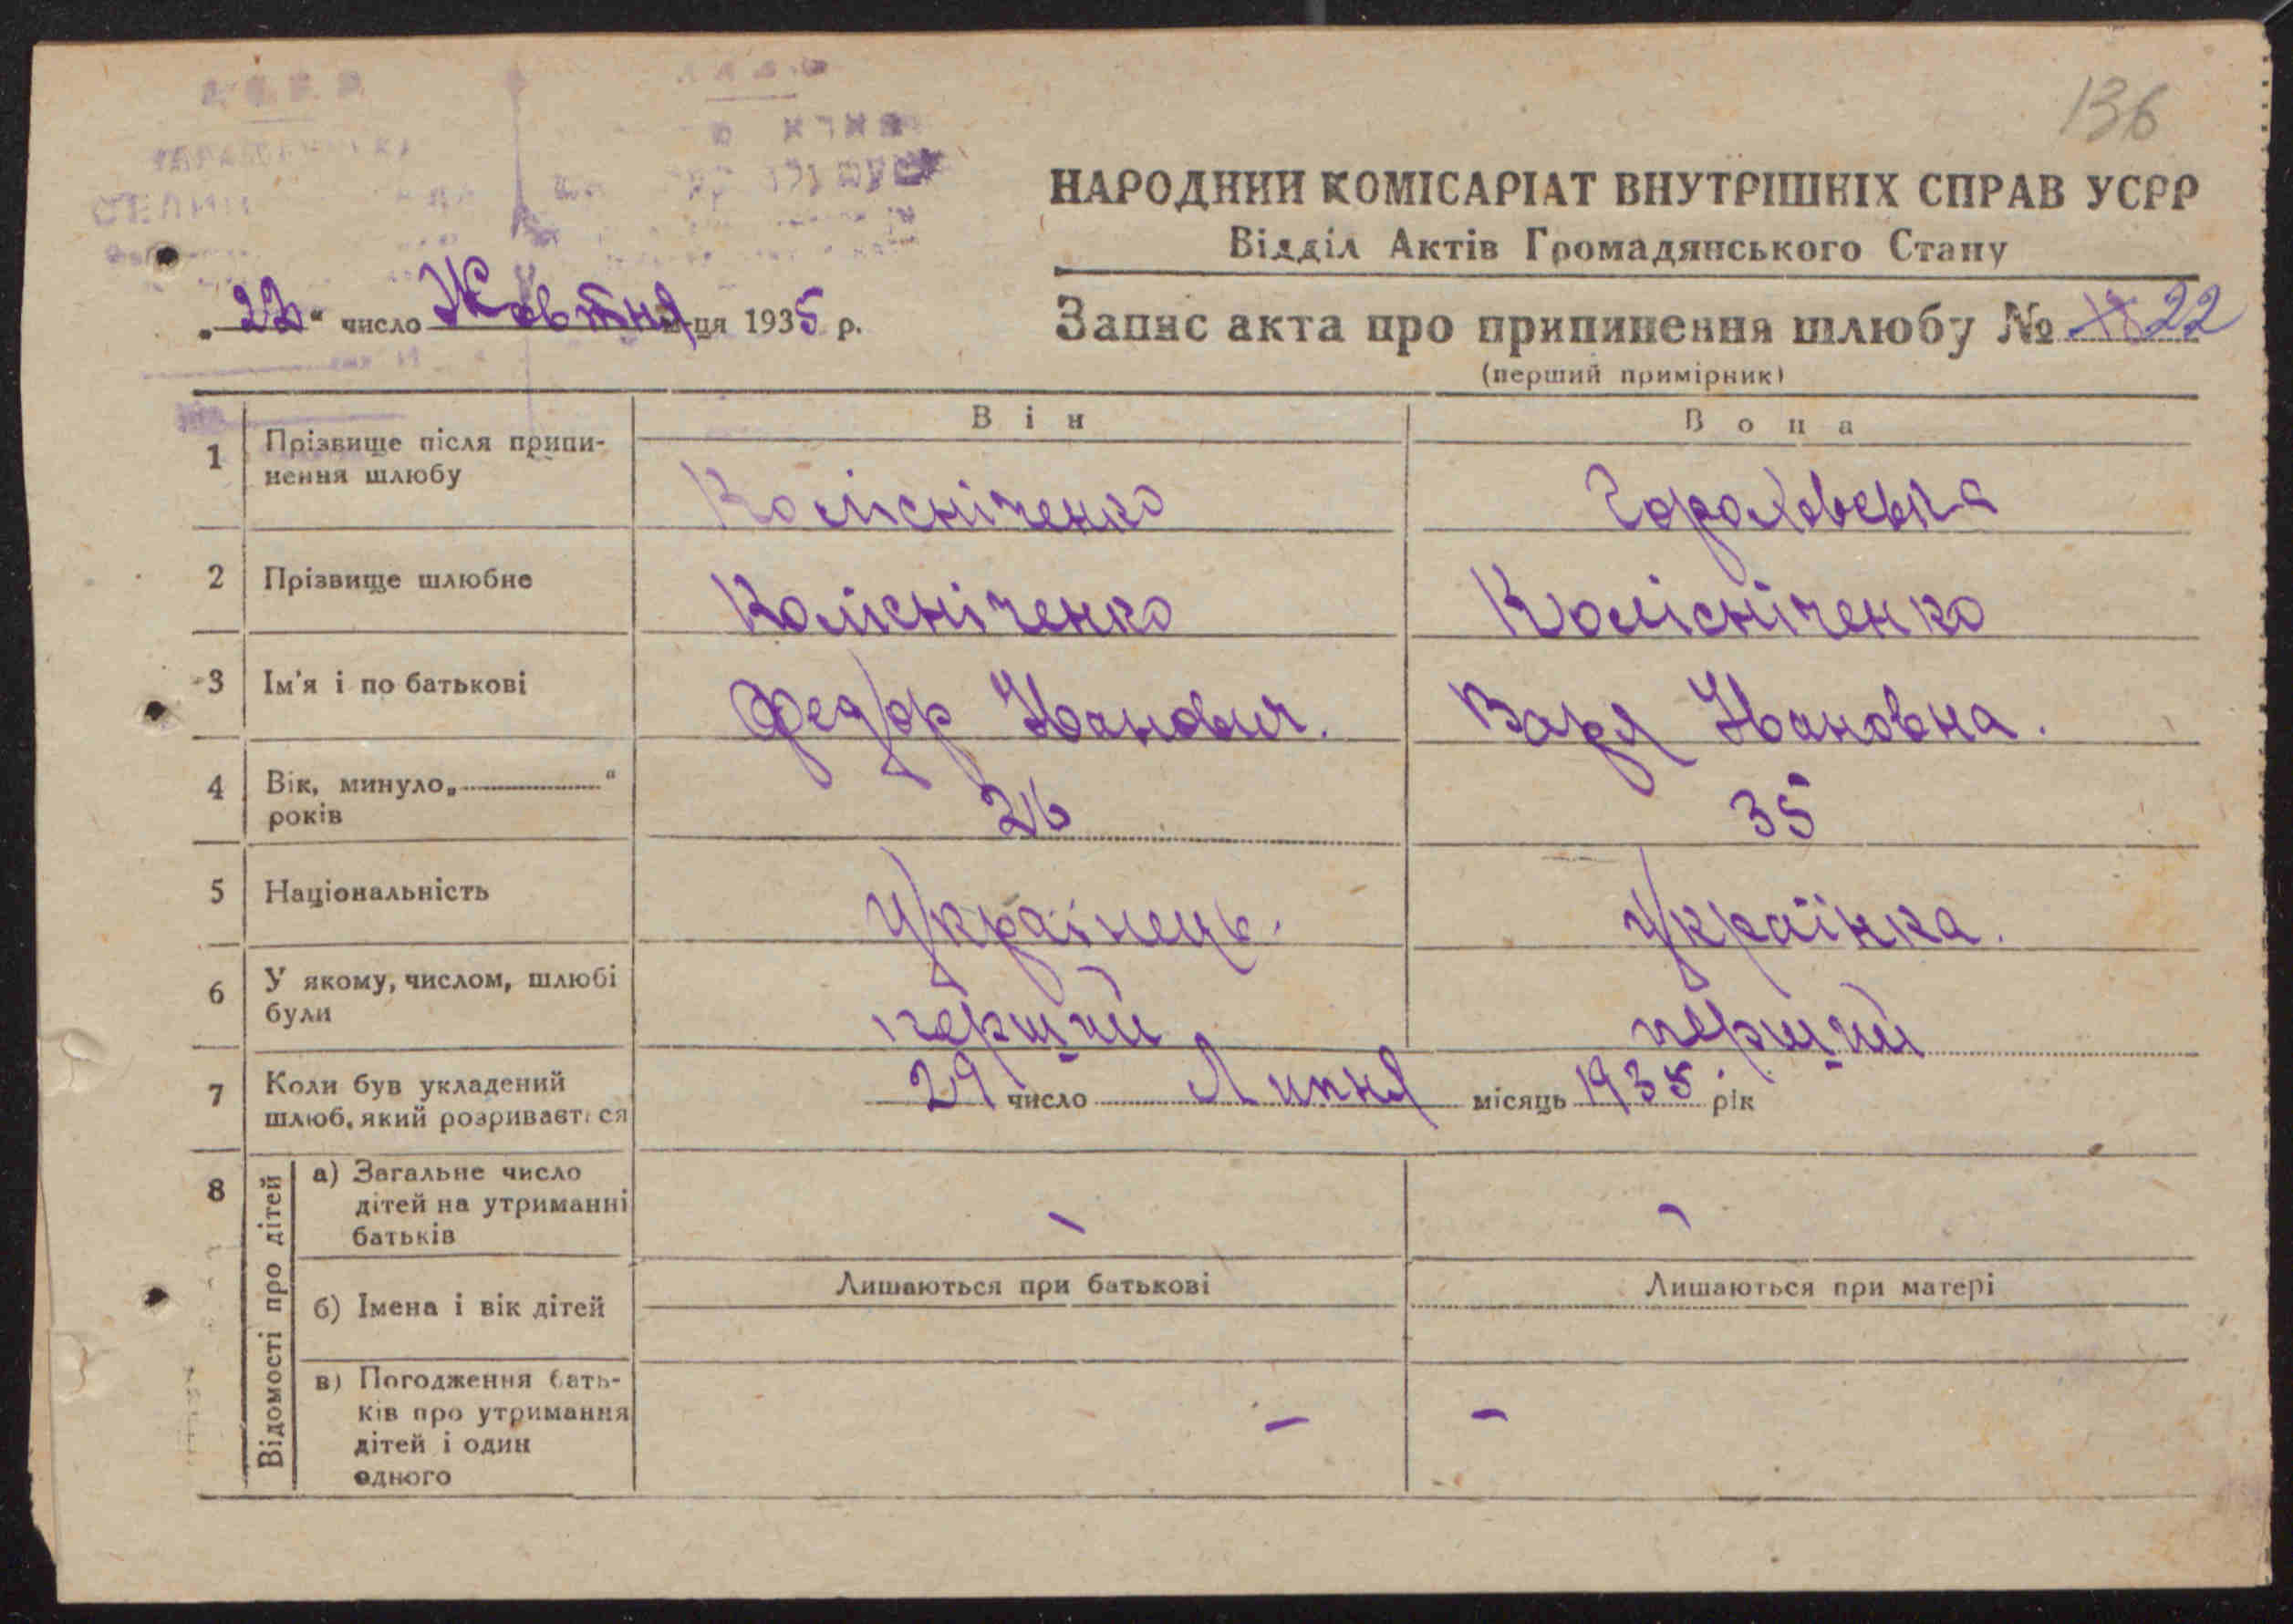 136
НАРОДНИЙ КОМІСАРІАТ ВНУТРІШНІХ СПРАВ УСРР
Відділ Актів Громадянського Стану
число Жовтня м-ця 1935 р.
Запис акта про припинення шлюбу № 22
(перший примірник)
Він Вона
1 Прізвище після припинення шлюбу Колісніченко
2 Прізвище шлюбне Колісніченко Колісніченко
3 Ім'я і по батькові Федор Іванович. Варя Івановна.
4 Вік, минуло „ “ років 26 35
5 Національність Українець. Українка.
6 У якому, числом, шлюбі були перший перший
7 Коли був укладений шлюб, який розривається 29 число Липня місяць 1935 рік
8 Відомості про дітей
а) Загальне число дітей на утриманні батьків - -
б) Імена і вік дітей Лишаються при батькові Лишаються при матері
в) Погодження батьків про утримання дітей і один одного - -